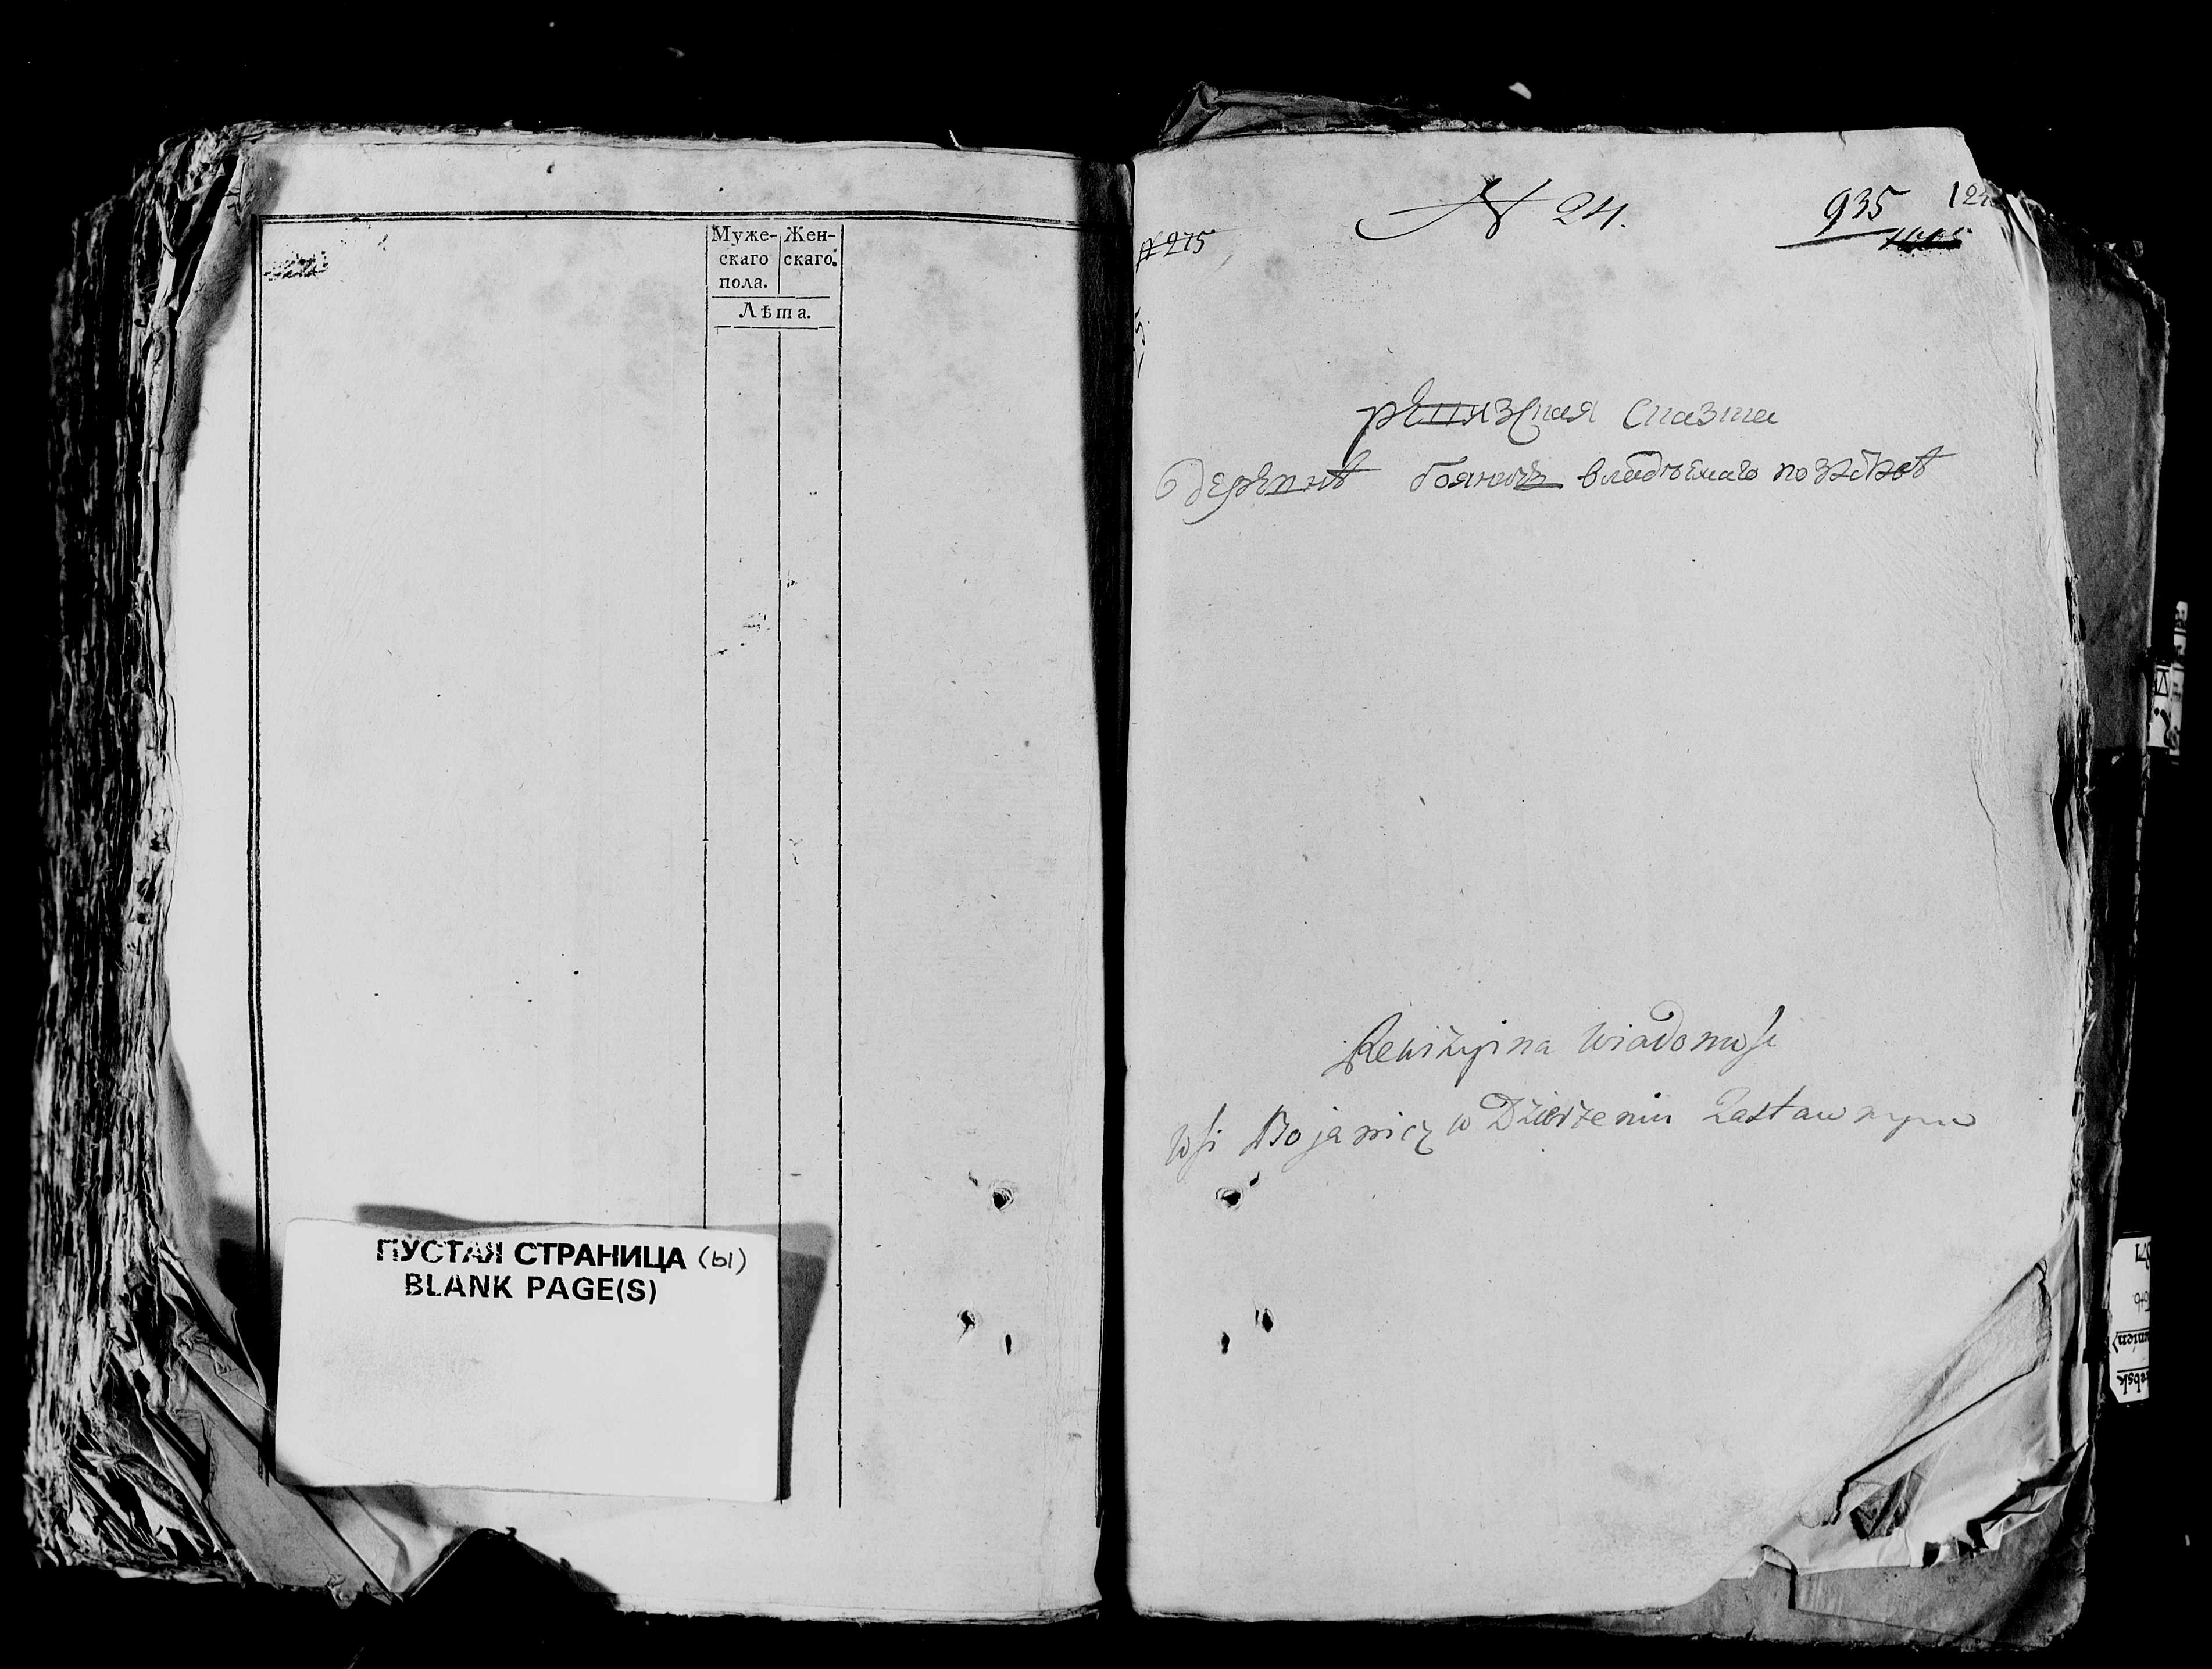 Муже-
скаго
пола.
Жен-
скаго.
Лѣта.
ПУСТАЯ СТРАНИЦА (ы)
BLANK PAGE(S)
№ 24.
935
№ 275
ревизская сказка
деревнѣ бояничъ владѣемаго по
Rewizyina wiadomosc
wsi Bojanicz w Dzierżeniu Zastawnym